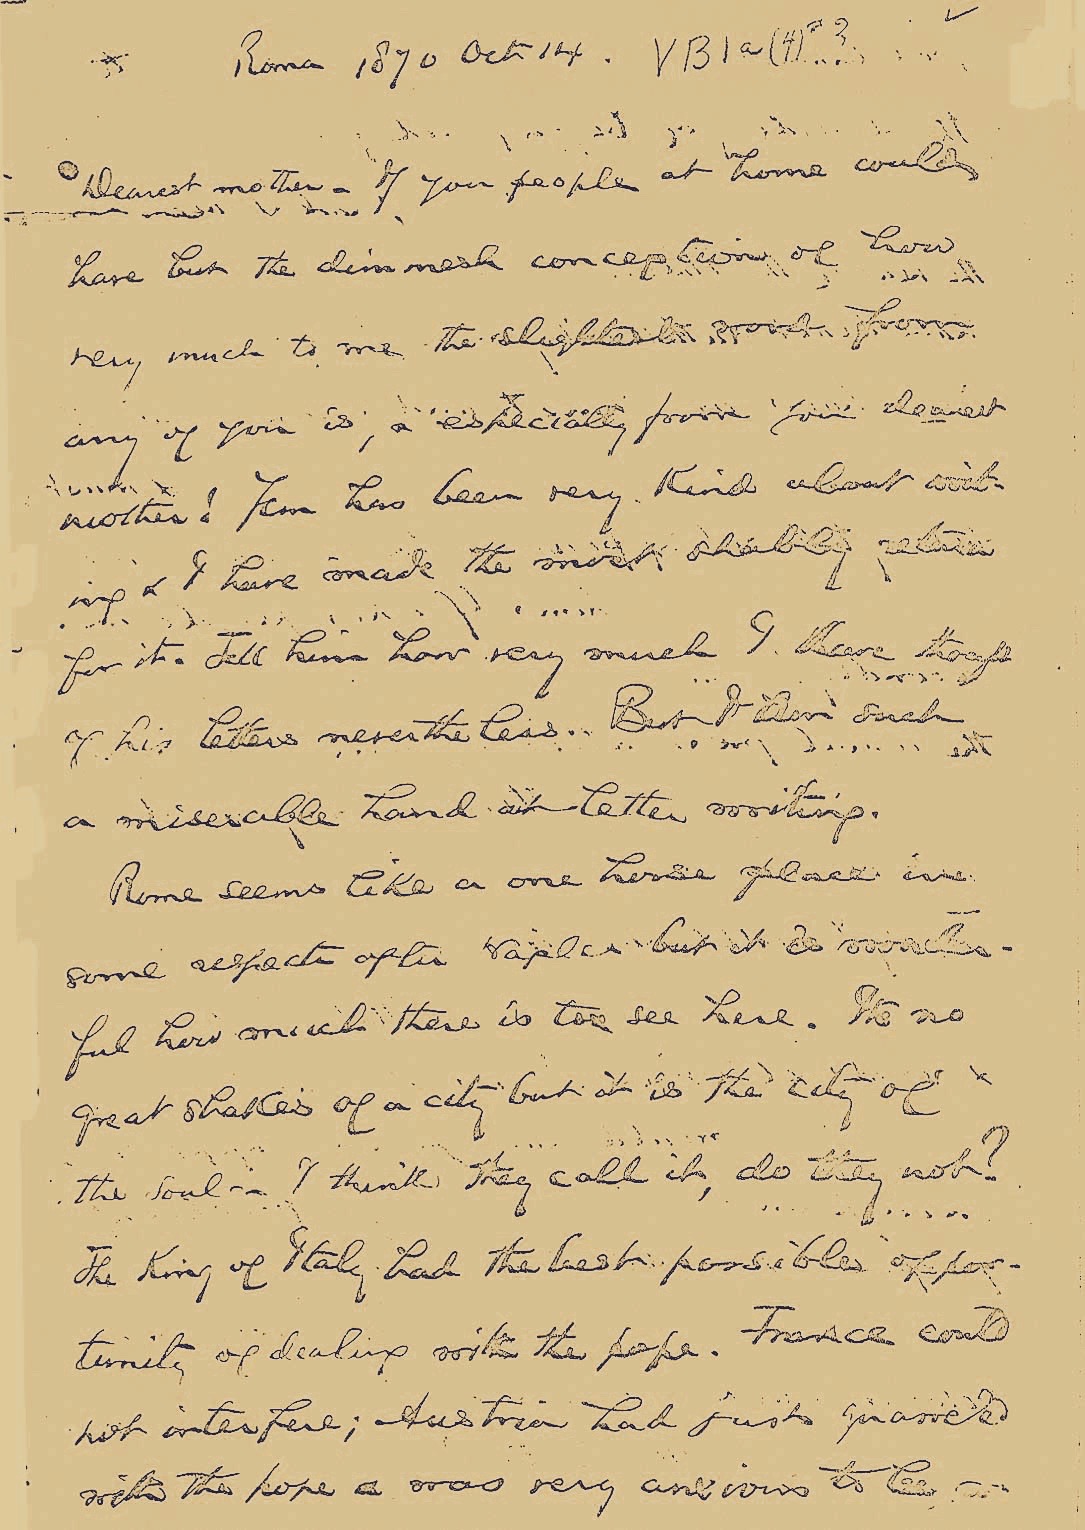 Roma 1870 Oct 14. VB1a(4)
Dearest mother - If you people at home could
have but the dimmest conception of how
very much to me the slightest word from
any of you is, & especially from you dearest
mother! Jem has been very kind about writ-
ing & I have made the most shabby return
for it. Tell him how very much I have thought
of his letters nevertheless. But I am such
a miserable hand at letter writing.
Rome seems like a one horse place in
some respects after Naples but it is wonder-
ful how much there is to see here. It's no
great shakes of a city but it is the city of
the soul - I think they call it, do they not?
The King of Italy had the best possible oppor-
tunity of dealing with the pope. France could
not interfere; Austria had just quarreled
with the pope & was very anxious to be